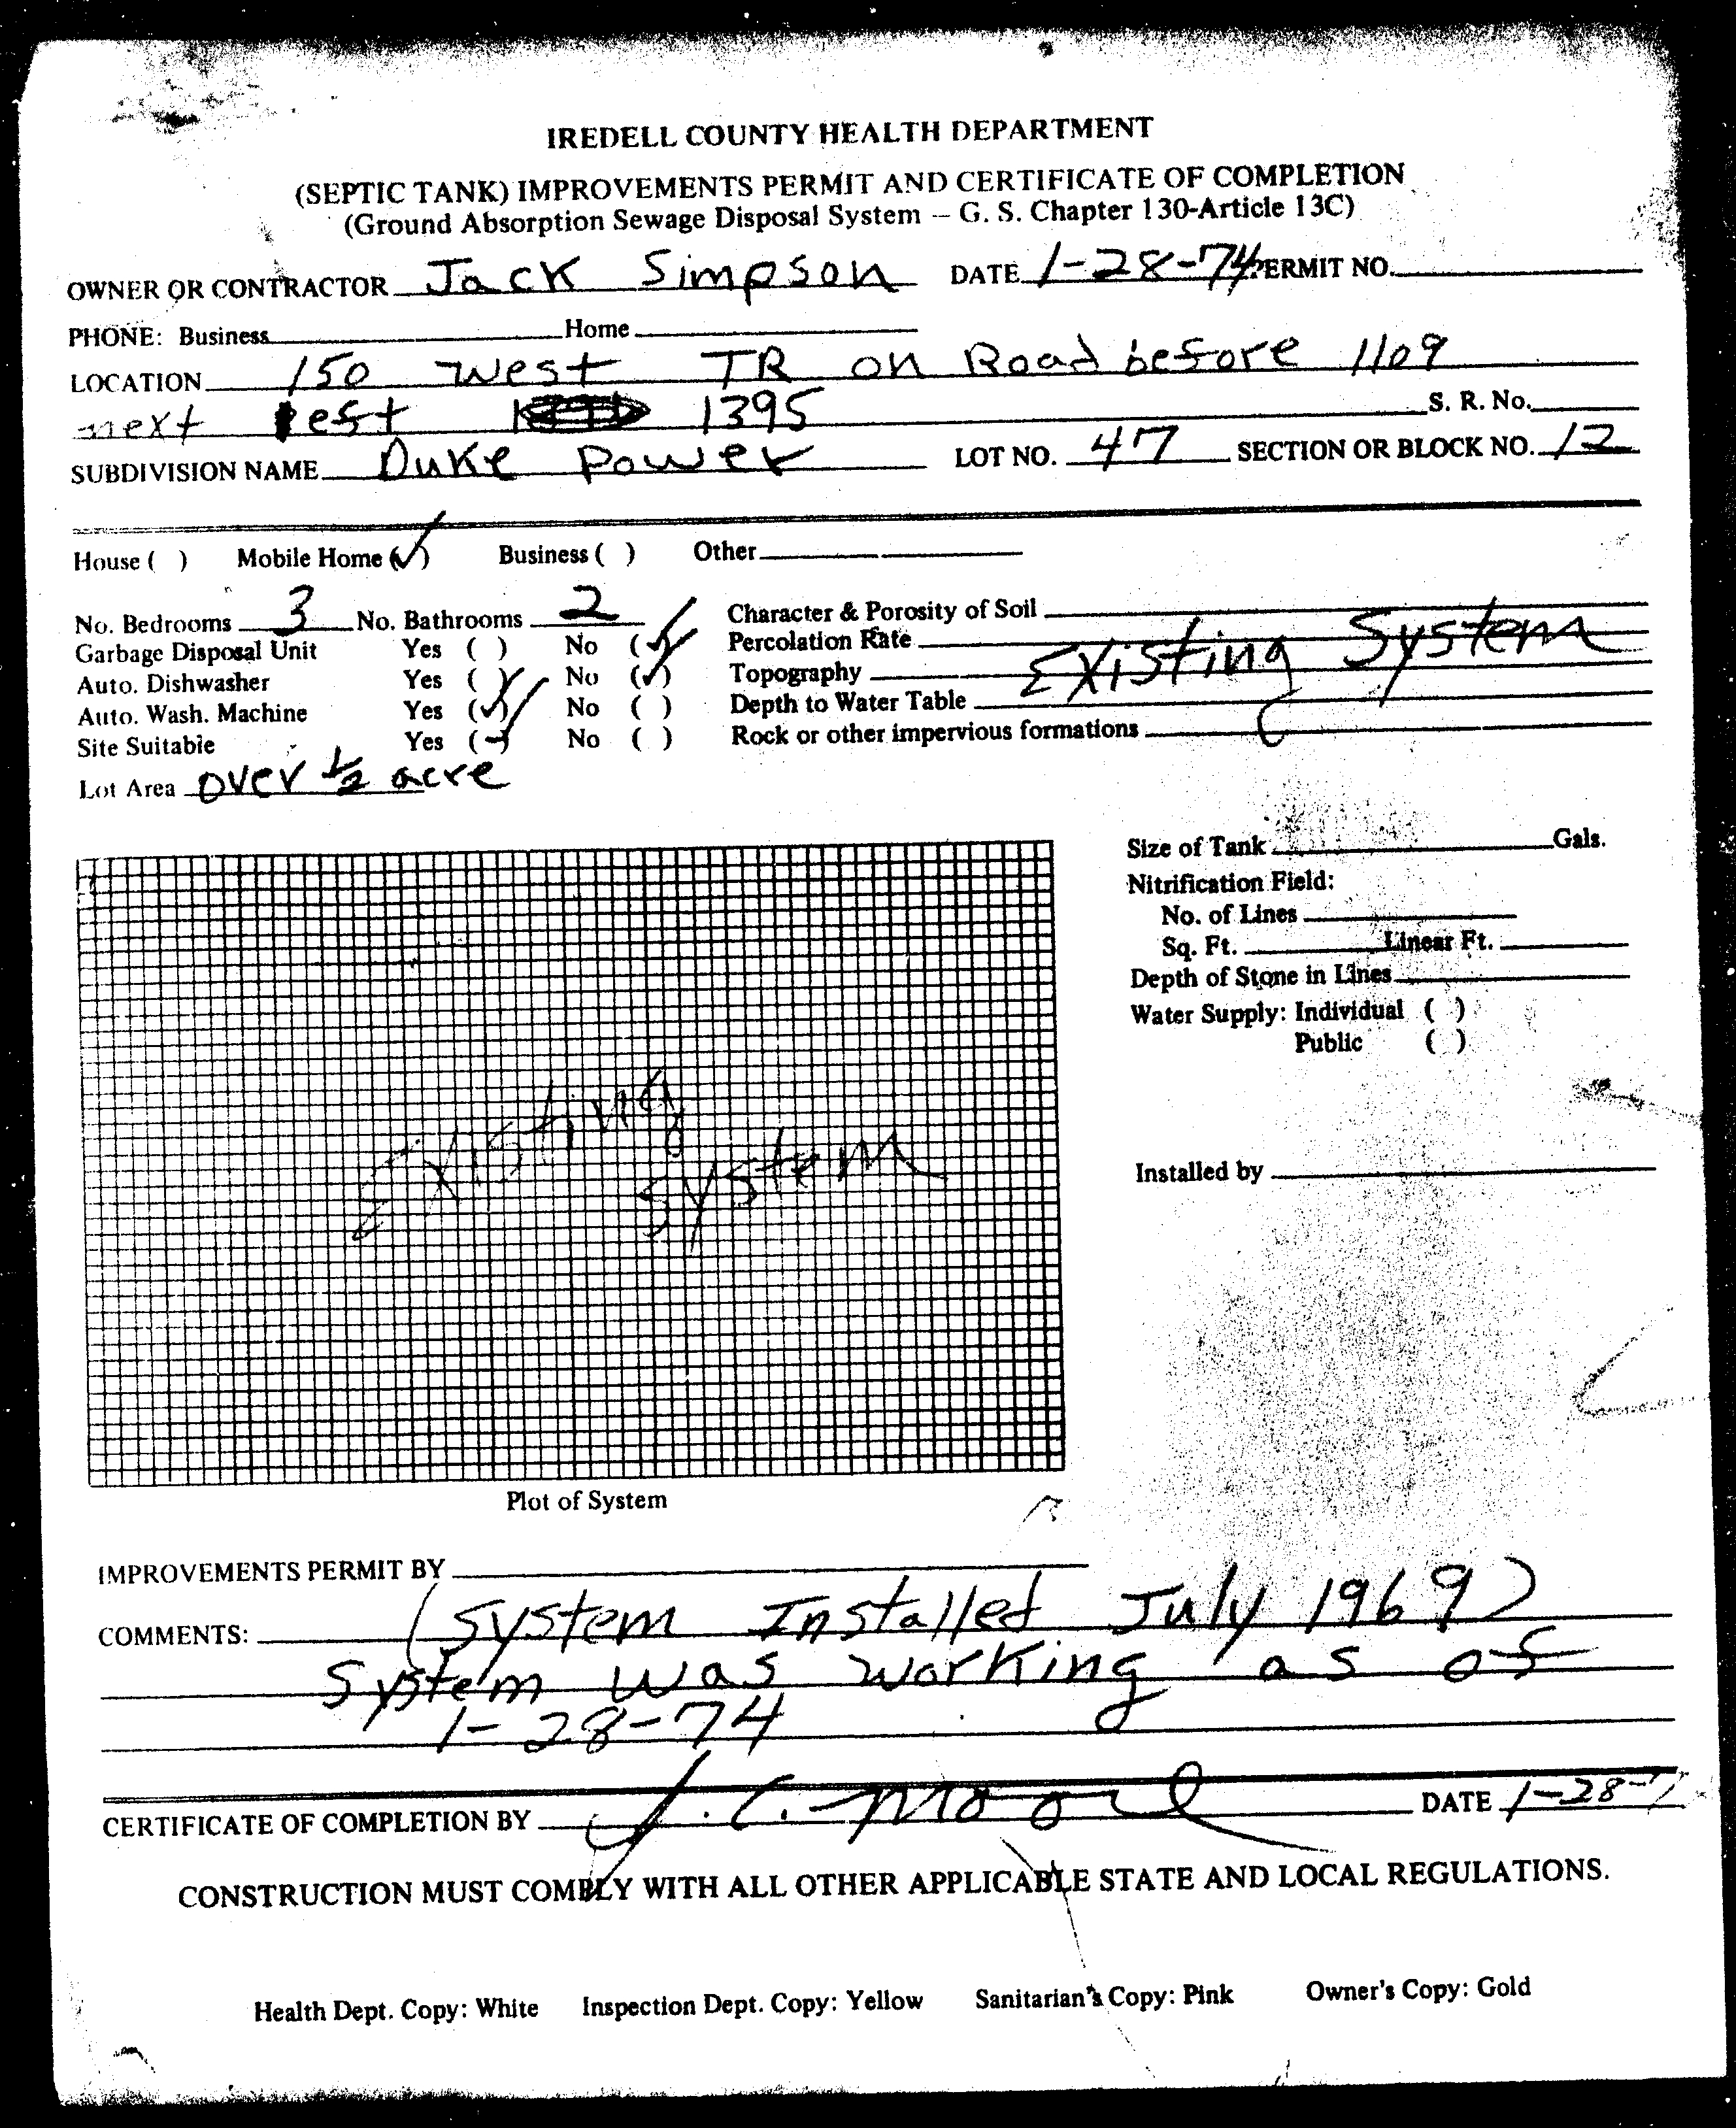 IREDELL COUNTY HEALTH DEPARTMENT
(SEPTIC TANK) IMPROVEMENTS PERMIT AND CERTIFICATE OF COMPLETION
(Ground Absorption Sewage Disposal System – G. S. Chapter 130-Article 13C)
OWNER OR CONTRACTOR Jack Simpson DATE 1-28-74 PERMIT NO.
PHONE: Business Home
LOCATION 150 West TR on Road before 1109
next left 1395 S. R. No.
SUBDIVISION NAME Duke Power LOT NO. 47 SECTION OR BLOCK NO. 12
House ( ) Mobile Home (✓) Business ( ) Other
No. Bedrooms 3 No. Bathrooms 2 Character & Porosity of Soil
Garbage Disposal Unit Yes ( ) No (✓) Percolation Rate Existing System
Auto. Dishwasher Yes ( ) No (✓) Topography
Auto. Wash. Machine Yes (✓) No ( ) Depth to Water Table
Site Suitable Yes (✓) No ( ) Rock or other impervious formations
Lot Area over 1/2 acre
Size of Tank Gals.
Nitrification Field:
No. of Lines
Sq. Ft. Linear Ft.
Depth of Stone in Lines
Water Supply: Individual ( )
Public ( )
Existing
System
Installed by
Plot of System
IMPROVEMENTS PERMIT BY
COMMENTS: (System Installed July 1969)
System was working as of
1-28-74
CERTIFICATE OF COMPLETION BY J. C. Moore DATE 1-28-7
CONSTRUCTION MUST COMPLY WITH ALL OTHER APPLICABLE STATE AND LOCAL REGULATIONS.
Health Dept. Copy: White Inspection Dept. Copy: Yellow Sanitarian's Copy: Pink Owner's Copy: Gold